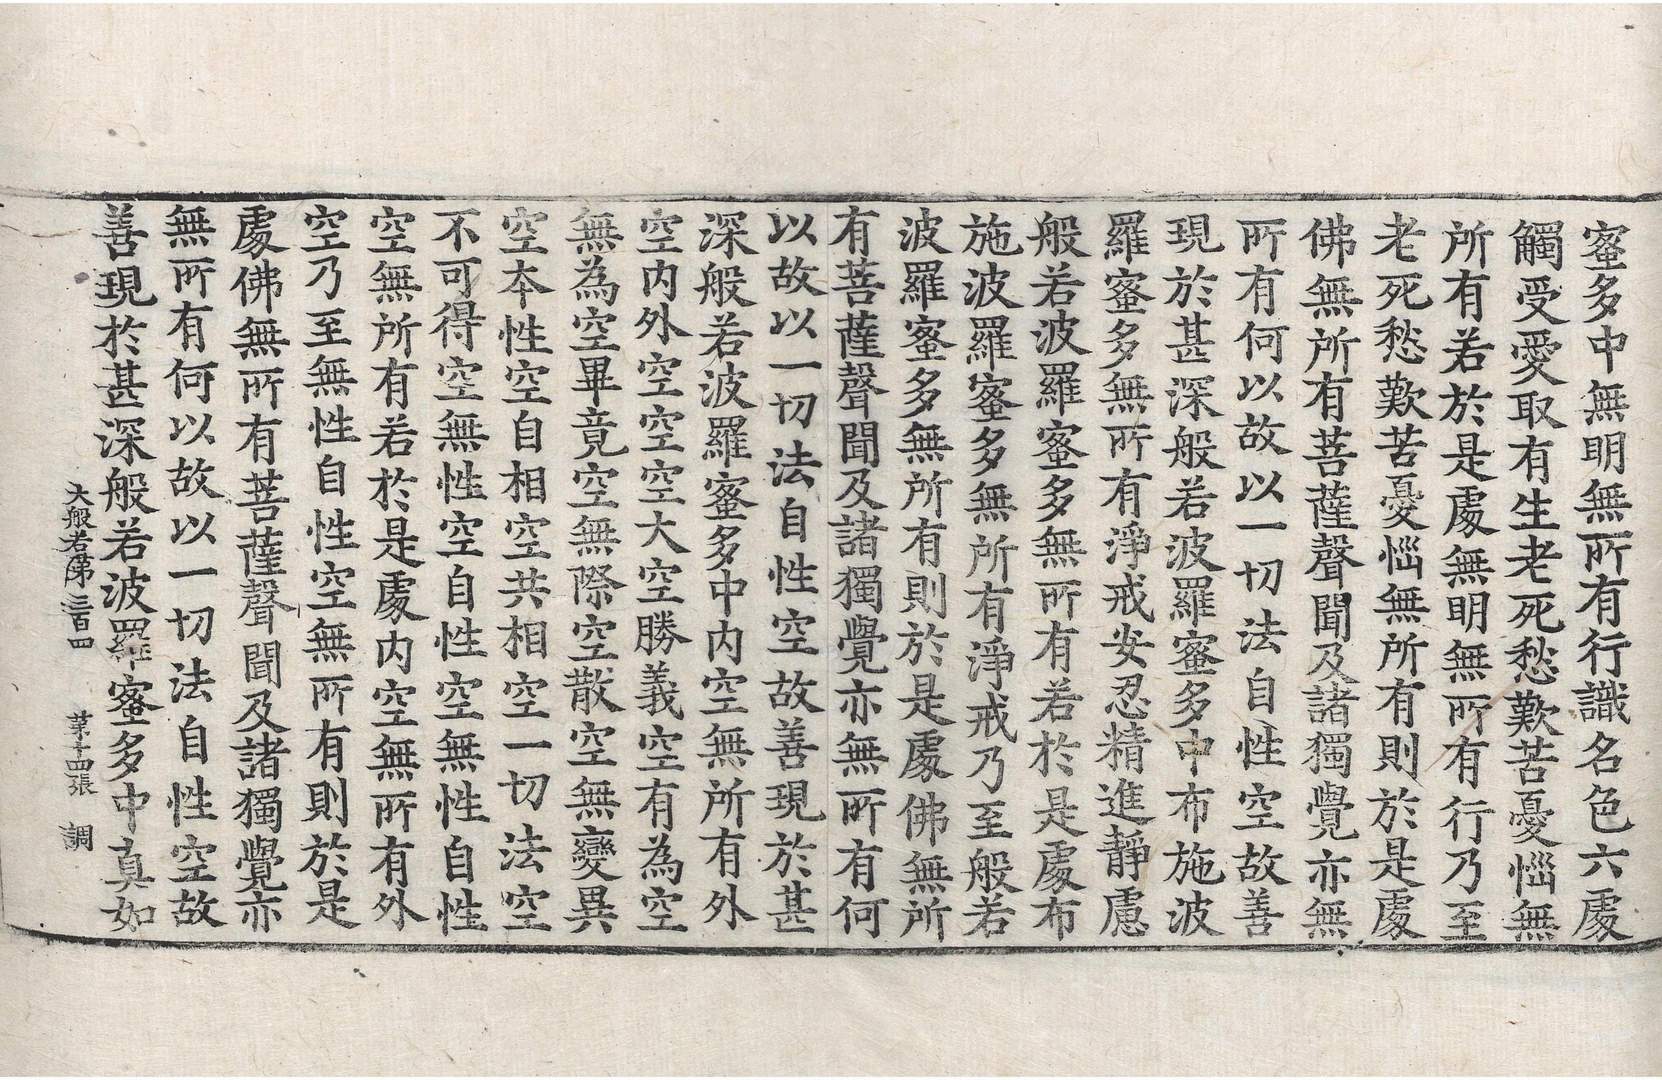 蜜多中無明無所有行識名色六處
觸受愛取有生老死愁歎苦憂惱無
所有若於是處無明無所有行乃至
老死愁歎苦憂惱無所有則於是處
佛無所有菩薩聲聞及諸獨覺亦無
所有何以故以一切法自性空故善
現於甚深般若波羅蜜多中布施波
羅蜜多無所有淨戒安忍精進靜慮
般若波羅蜜多無所有若於是處布
施波羅蜜多無所有淨戒乃至般若
波羅蜜多無所有則於是處佛無所
有菩薩聲聞及諸獨覺亦無所有何
以故以一切法自性空故善現於甚
深般若波羅蜜多中內空無所有外
空內外空空空大空勝義空有為空
無為空畢竟空無際空散空無變異
空本性空自相空共相空一切法空
不可得空無性空自性空無性自性
空無所有若於是處內空無所有外
空乃至無性自性空無所有則於是
處佛無所有菩薩聲聞及諸獨覺亦
無所有何以故以一切法自性空故
善現於甚深般若波羅蜜多中真如
大般若第三百四 第十四張 調